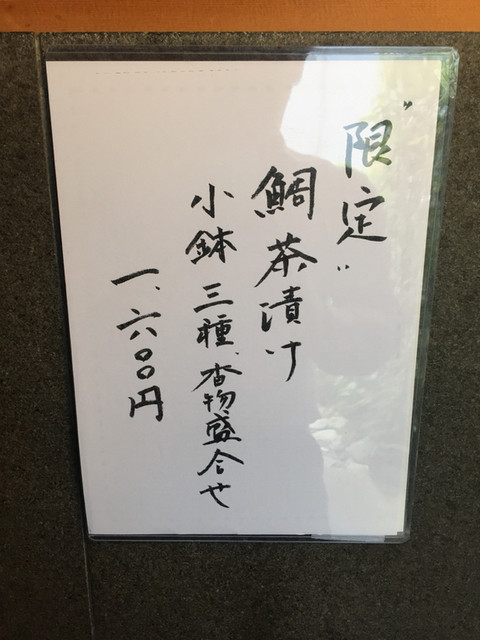 "限定"
鯛茶漬け
小鉢三種、香物盛合せ
一、六〇〇円